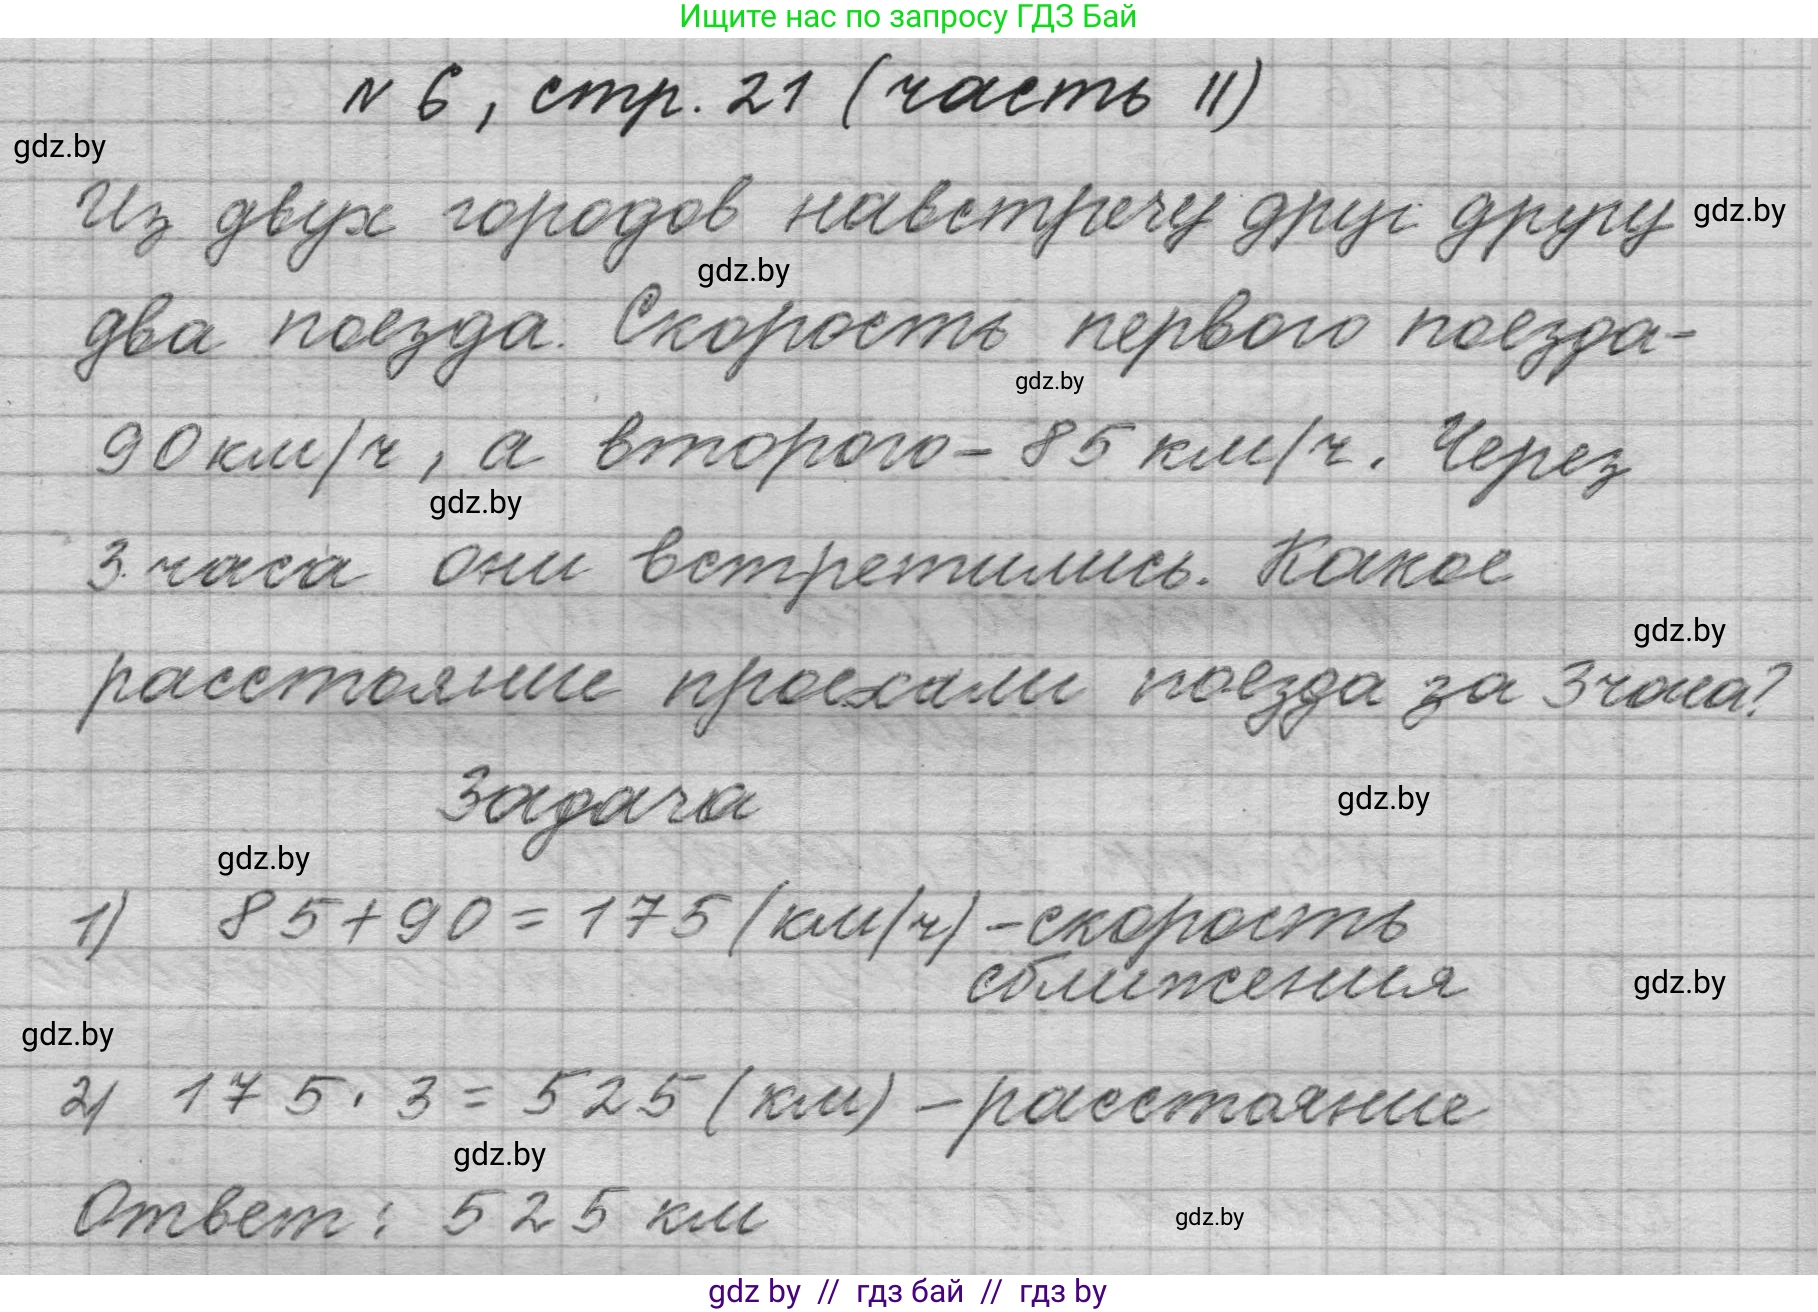 Ищите нас по запросу ГДЗ Бай
№ 6, стр. 21 (часть II)
gdz.by
Из двух городов навстречу друг другу
gdz.by
gdz.by
два поезда. Скорость первого поезда-
gdz.by
90 км/ч, а второго - 85 км/ч. Через
gdz.by
3 часа они встретились. Какое
gdz.by
расстояние проехали поезда за 3 часа?
Задача
gdz.by
gdz.by
1) 85+90=175 (км/ч) - скорость
сближения
gdz.by
gdz.by
2) 175 · 3 = 525 (км) - расстояние
gdz.by
Ответ: 525 км
gdz.by
gdz by // гдз бай // гдз by